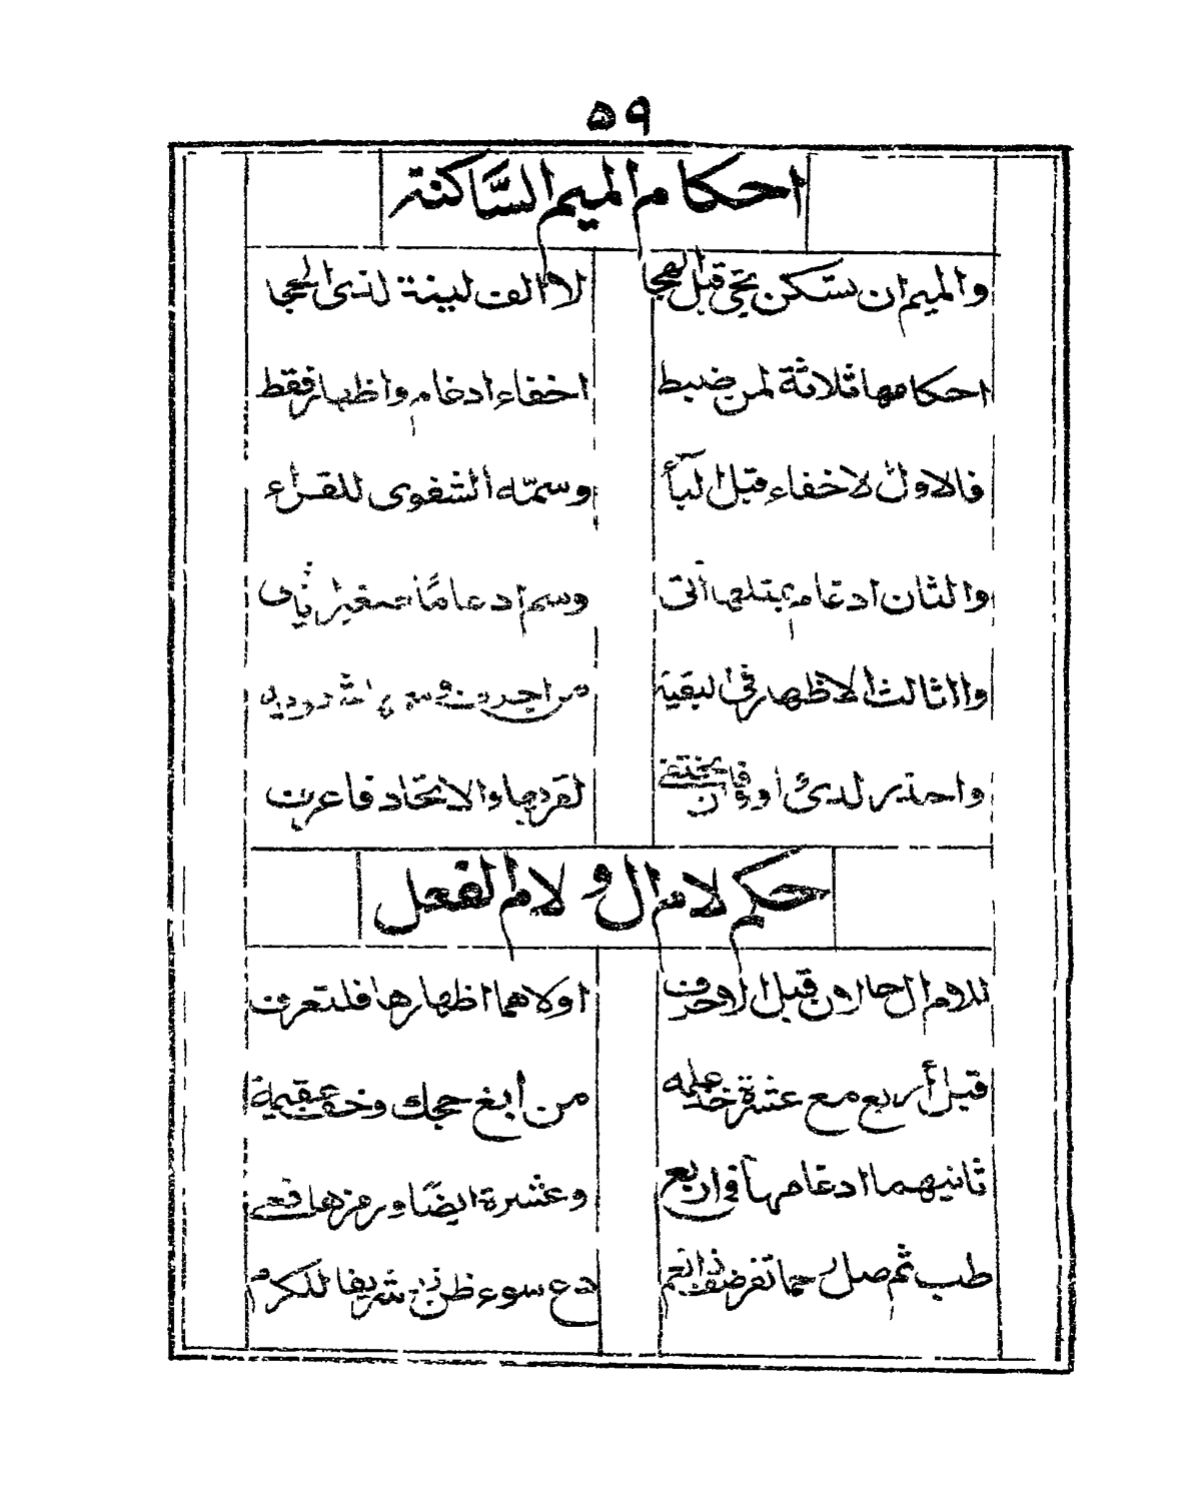 ٥٩
احكام الميم السَّاكنة
والميم ان تسكن تجي قبل الهجا لا الف لينة لذى الحجا
احكامها ثلاثة لمن ضبط اخفاء ادغام واظهار فقط
فالاول لاخفاء قبل البآء وسمّه الشفوى للقراء
والثان ادغام بمثلها اتى وسم ادغامًا صغيرا يا فتى
والثالث الاظهار فى البقية من احرف وسمها شفويه
واحذر لدى واو وفا ان تختفى لقربها والاتحاد فاعرف
حكم لام ال و لام الفعل
للام ال حالان قبل الاحرف اولاهما اظهارها فلتعرف
قبل أربع مع عشرة خذ علمه من أبغ حجك وخف عقيمة
ثانيهما ادغامها فى اربع وعشرة ايضًا ورمزها فعى
طب ثم صل رحما تفز ضف ذا نعم دع سوء ظن زر شريفا للكرم